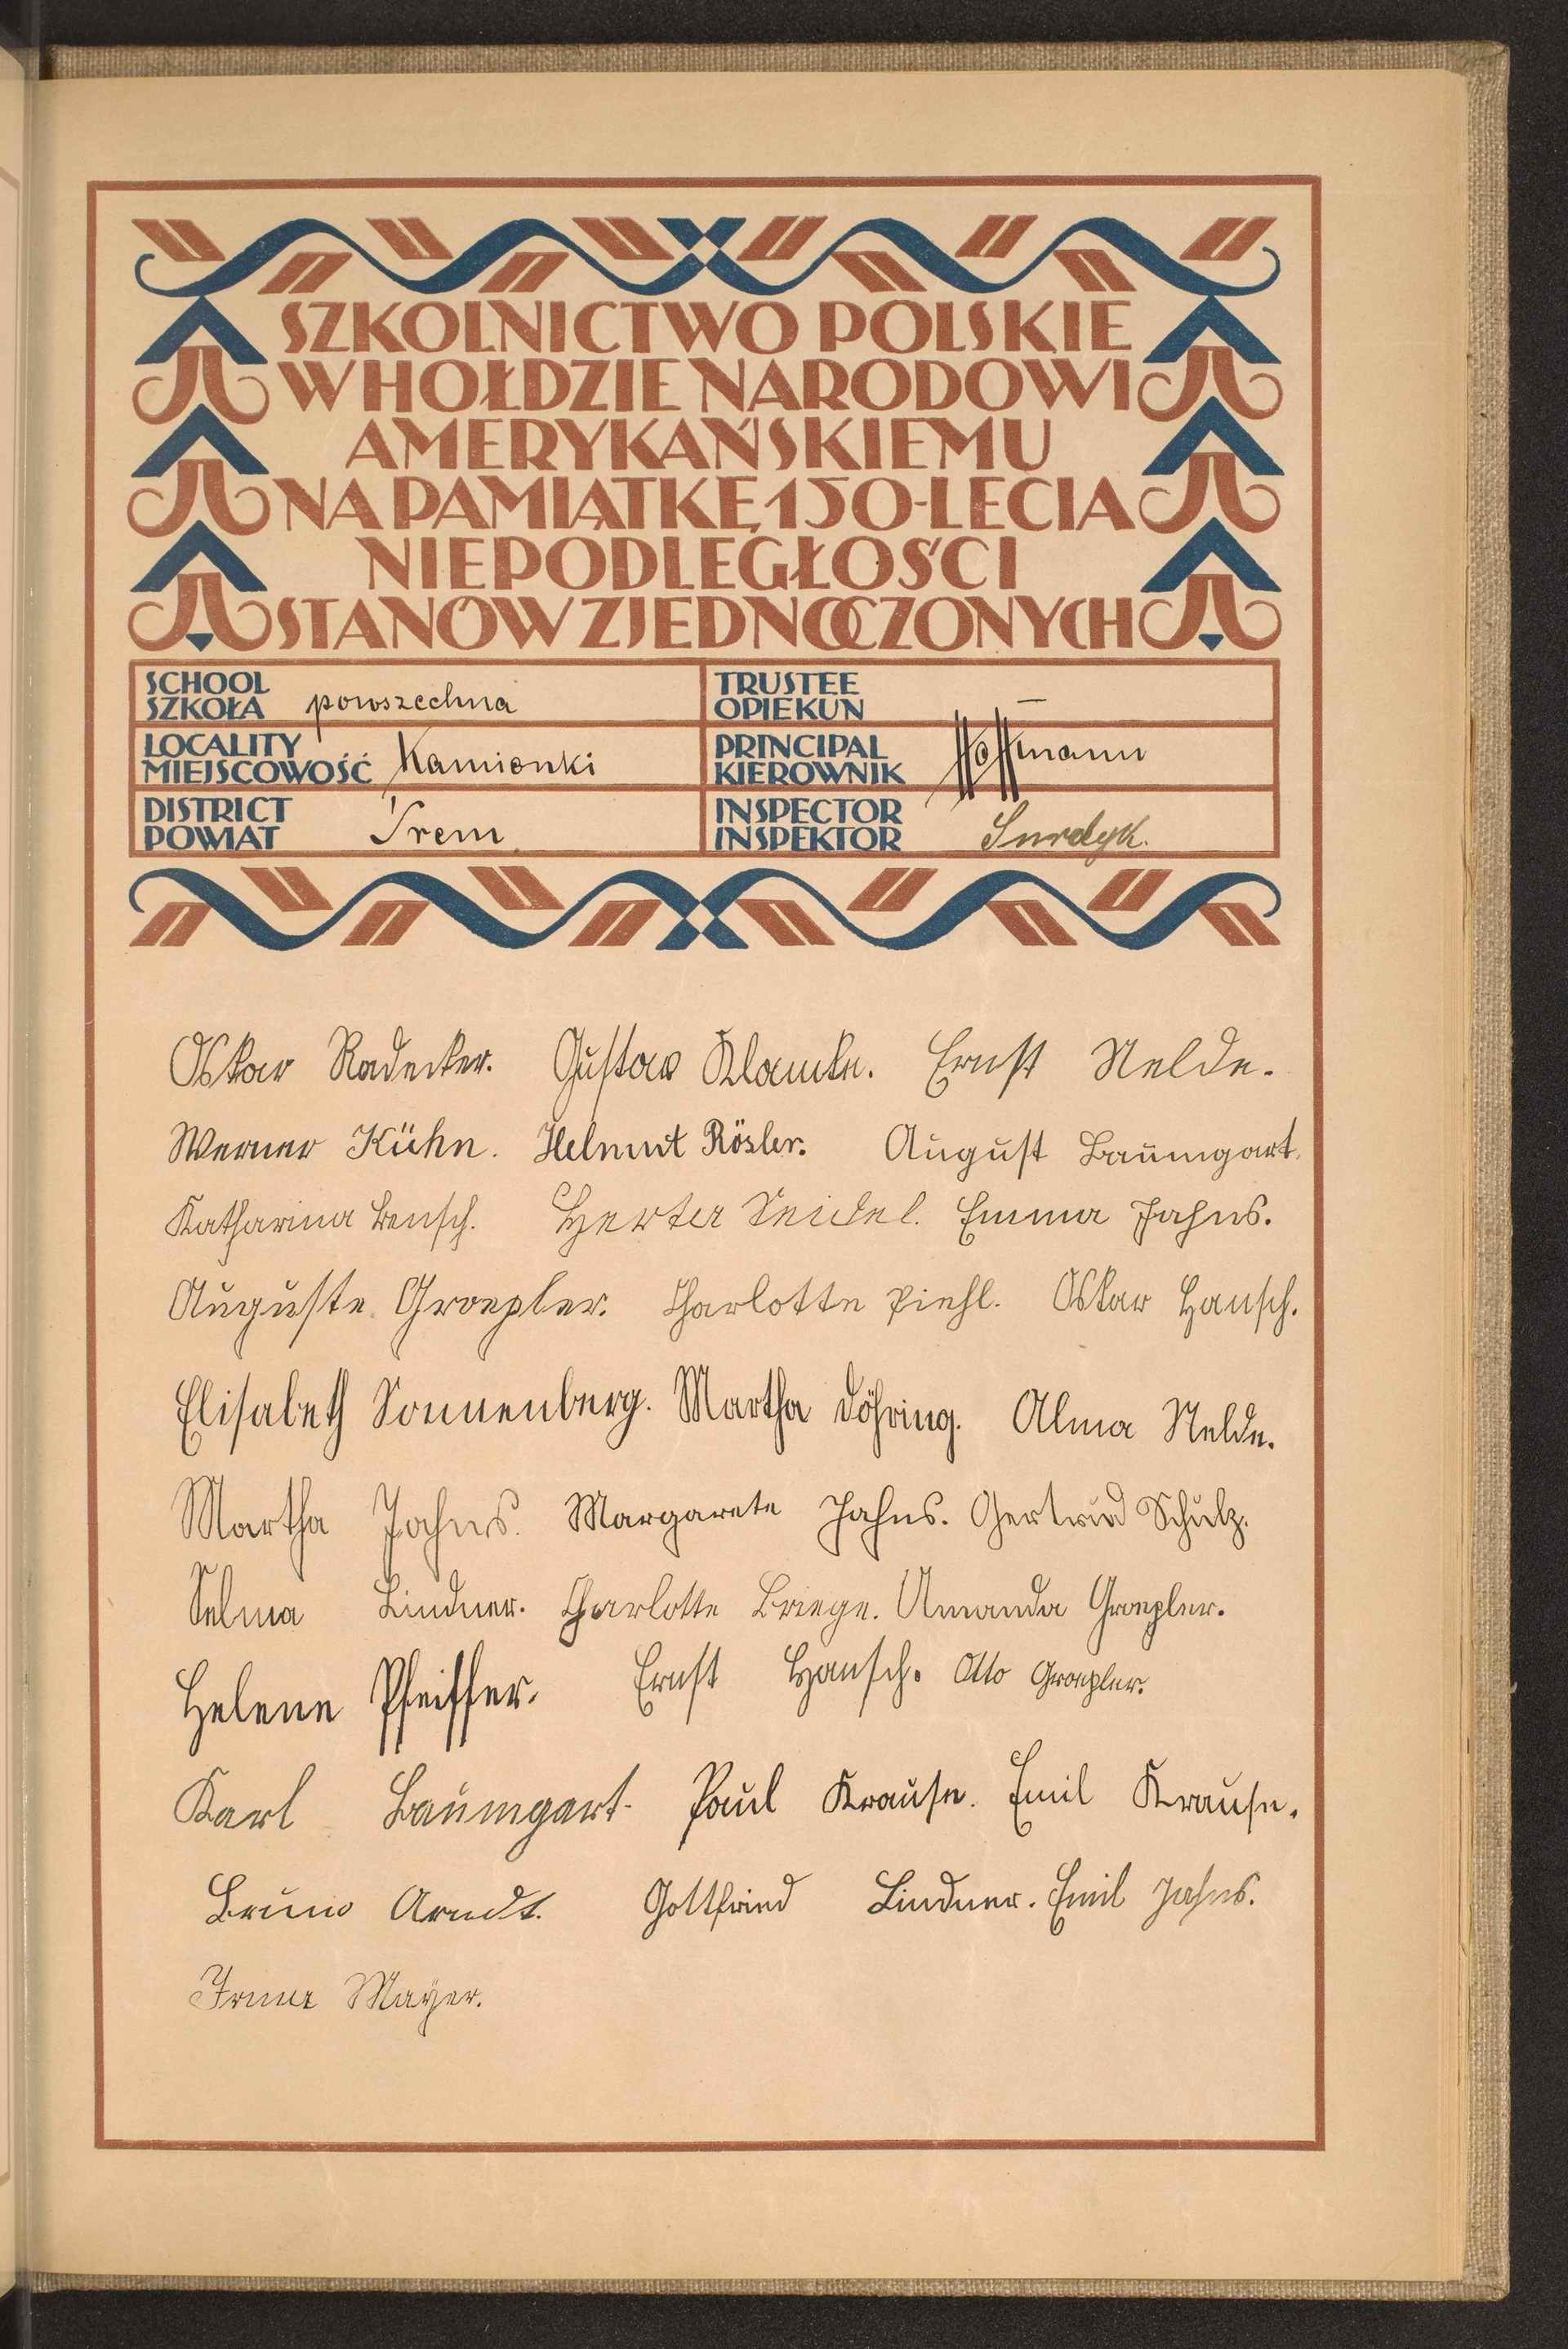 SZKOLNICTWO POLSKIE
W HOŁDZIE NARODOWI
AMERYKAŃSKIEMU
NA PAMIĄTKĘ 150-LECIA
NIEPODLEGŁOŚCI
STANÓW ZJEDNOCZONYCH
SCHOOL
SZKOŁA powszechna
TRUSTEE
OPIEKUN —
LOCALITY
MIEJSCOWOŚĆ Kamionki
PRINCIPAL
KIEROWNIK Hoffmann
DISTRICT
POWIAT Śrem
INSPECTOR
INSPEKTOR Surdyk.
Oskar Radecker. Gustav Klamke. Ernst Nelde.
Werner Kühn. Helmut Rösler. August Baumgart.
Katharina Bensch. Herta Seidel. Emma Jahns.
Auguste Groepler. Charlotte Piehl. Oskar Hansch.
Elisabeth Sonnenberg. Martha Döhring. Alma Nelde.
Martha Jahns. Margarete Jahns. Gertrud Schulz.
Selma Lindner. Charlotte Briege. Amanda Groepler.
Helene Pfeiffer. Ernst Hansch. Otto Groepler.
Karl Baumgart. Paul Krause. Emil Krause.
Bruno Arndt. Gottfried Lindner. Emil Jahns.
Irma Mayer.